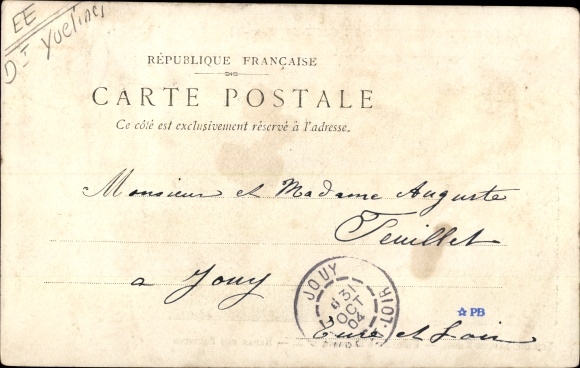 EE
Dt Yvelines
RÉPUBLIQUE FRANÇAISE
CARTE POSTALE
Ce côté est exclusivement réservé à l'adresse.
Monsieur et Madame Auguste
Feuillet
a Jouy
JOUY
31
OCT
04
Eure et Loir
PB